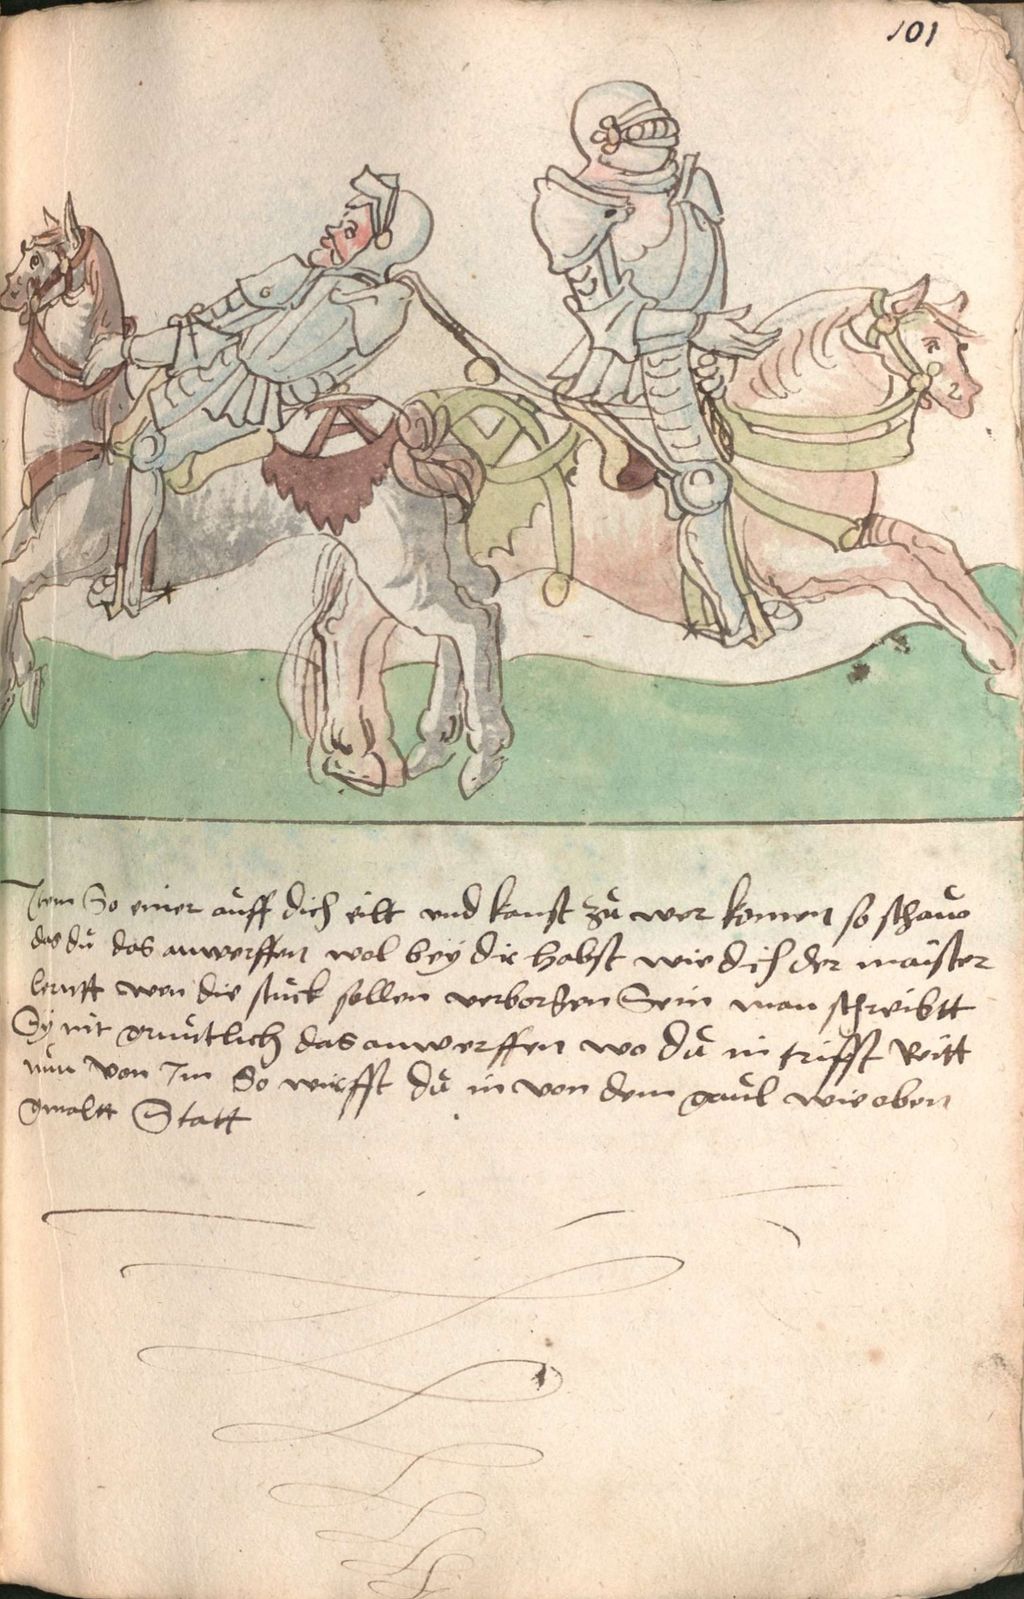 101
Item So einer aůff dich eilt vnd kanst zů wer komen so schaůo
das dů das anwerffen wol bey dir habst wie dich der maister
lernt wen die stůck sollen verborgen Sein man schreibtt
Sy nit grůntlich das anwerffen wo dů in trifft Reitt
nůn von Im So wirffst dů in von dem gaůl wie oben
gmaltt Statt